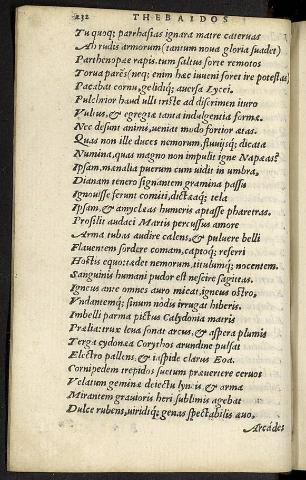 232 THEBAIDOS
Tu quoq; parrhasias ignara matre cateruas
Ah rudis armorum (tantum noua gloria suadet)
Parthenopæe rapis. tum saltus forte remotos
Torua parẽs (neq; enim hæc iuueni foret ire potestas)
Pacabat cornu, gelidiq; auersa Lycei.
Pulchrior haud ulli triste ad discrimen ituro
Vultus, & egregiæ tanta indulgentia formæ.
Nec desunt animi, ueniat modo fortior ætas.
Quas non ille duces nemorum, fluuijsq; dicata
Numina, quas magno non impulit igne Napæas?
Ipsam, mænalia puerum cum uidit in umbra,
Dianam tenero signantem gramina passu
Ignouisse ferunt comiti, dictææq; tela
Ipsam, & amyclæas humeris aptasse pharetras.
Prosilit audaci Martis percussus amore
Arma tubas audire calens, & puluere belli
Flauentem sordere comam, captoq; referri
Hostis equo: tædet nemorum, titulumq; nocentem
Sanguinis humani pudor est nescire sagittas.
Igneus ante omnes auro micat, igneus ostro,
Vndantemq; sinum nodis irrugat hiberis.
Imbelli parma pictus Calydonia matris
Prælia: trux leua sonat arcus, & aspera plumis
Terga cydonæa Corythos arundine pulsat
Electro pallens, & iaspide clarus Eoa.
Cornipedem trepidos suetum præuertere ceruos
Velatum geminæ deiectu lyncis, & arma
Mirantem grauioris heri sublimis agebat
Dulce rubens, uiridiq; genas spectabilis æuo.
Arcades